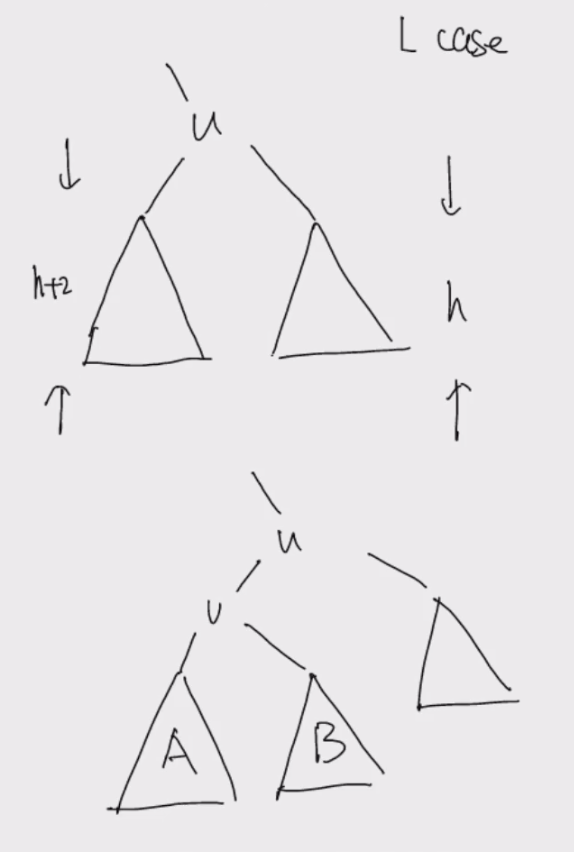 L case
u
h+2
h
u
v
A
B